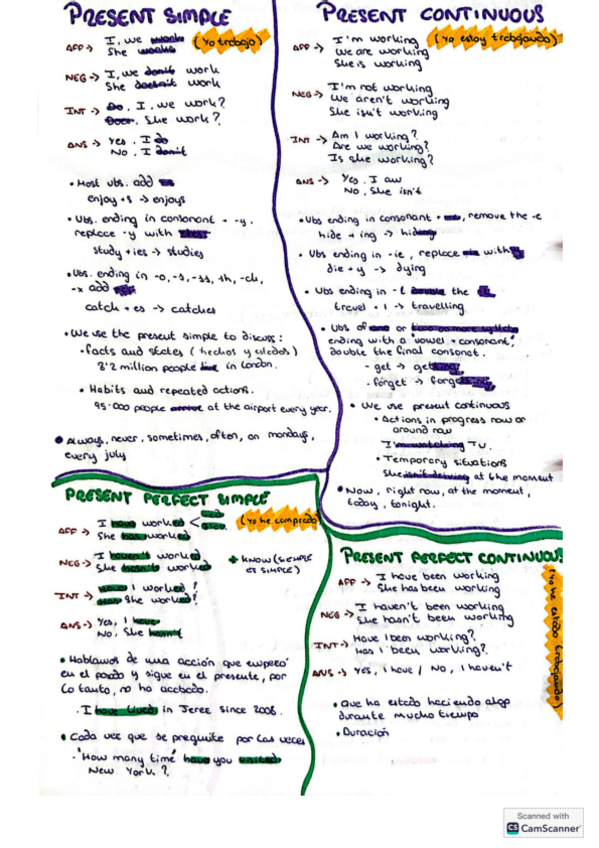 PRESENT SIMPLE
AFF → I, we works (Yo trabajo)
She works
NEG → I, we don't work
She doesn't work
INT → Do, I, we work?
Does, She work?
ANS → Yes, I do
No, I don't
• Most vbs. add
enjoy + s → enjoys
• Vbs. ending in consonant + -y,
replace -y with
study + ies → studies
• Vbs. ending in -o, -s, -ss, -sh, -ch,
-x add
catch + es → catches
• We use the present simple to discuss:
• facts and states (hechos y estados)
8'2 million people live in London.
• Habits and repeated actions.
95'000 people arrive at the airport every year.
• Always, never, sometimes, often, on mondays,
every july
PRESENT CONTINUOUS
AFF → I'm working (Yo estoy trabajando)
We are working
She is working
NEG → I'm not working
We aren't working
She isn't working
INT → Am I working?
Are we working?
Is she working?
ANS → Yes, I am
No, She isn't
• Vbs ending in consonant + , remove the -e
hide + ing → hiding
• Vbs ending in -ie, replace with
die + y → dying
• Vbs ending in -l double the
travel + l → travelling
• Vbs of one or two or more syllables
ending with a 'vowel + consonant'
double the final consonat.
- get → getting
- forget → forgetting
• We use present continuous
• Actions in progress now or
around now
I'm watching TV.
• Temporary situations
She isn't driving at the moment
• Now, right now, at the moment,
today, tonight.
PRESENT PERFECT SIMPLE
AFF → I have worked < (Yo he comprado)
She has worked
NEG → I haven't worked
She hasn't worked
+ KNOW (SIEMPRE
ES SIMPLE)
INT → Have I worked?
Has She worked?
ANS → Yes, I have
No, She hasn't
• Hablamos de una acción que empezó
en el pasado y sigue en el presente, por
lo tanto, no ha acabado.
. I have lived in Jerez since 2006.
• Cada vez que se pregunte por las veces
- 'How many time' have you visited
New York?
PRESENT PERFECT CONTINUOUS
(Yo he estado trabajando)
AFF → I have been working
She has been working
NEG → I haven't been working
She hasn't been working
INT → Have I been working?
Has I been working?
ANS → YES, I have / NO, I haven't
• Que ha estado haciendo algo
durante mucho tiempo
• Duración
Scanned with
CS CamScanner